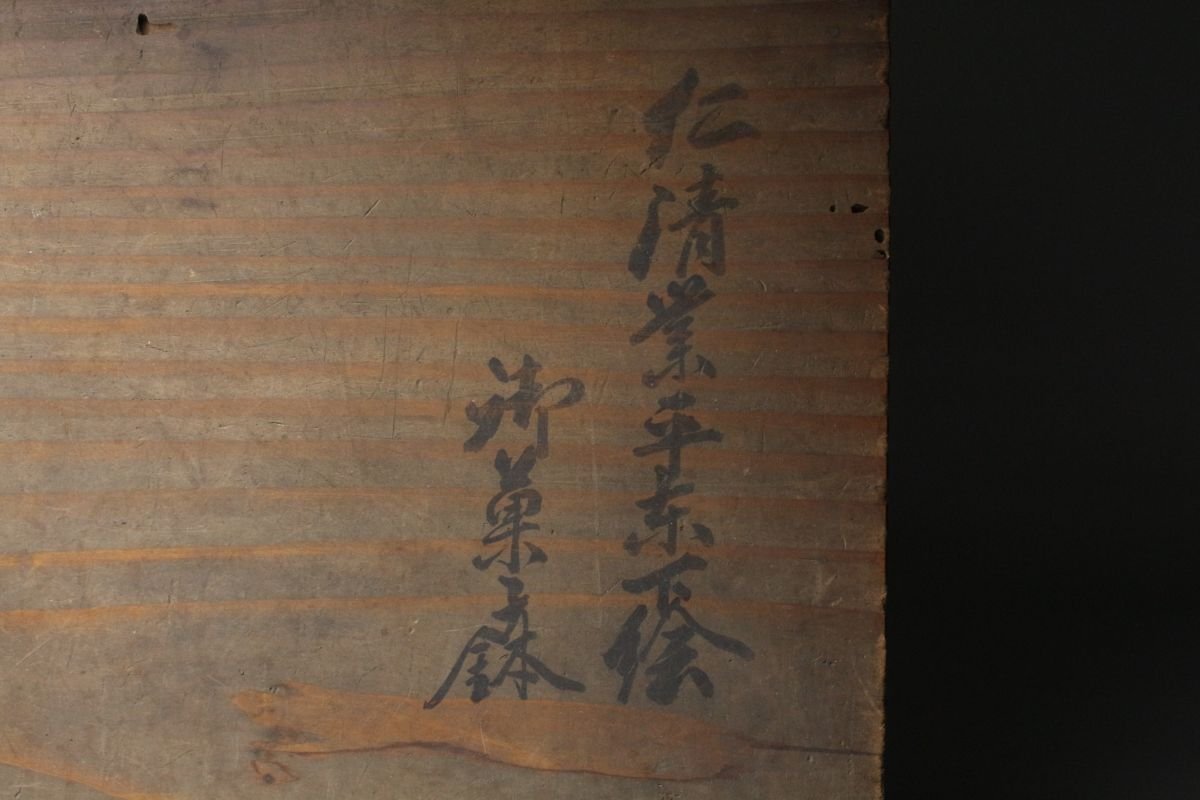 仁清業平東下絵
御菓子鉢